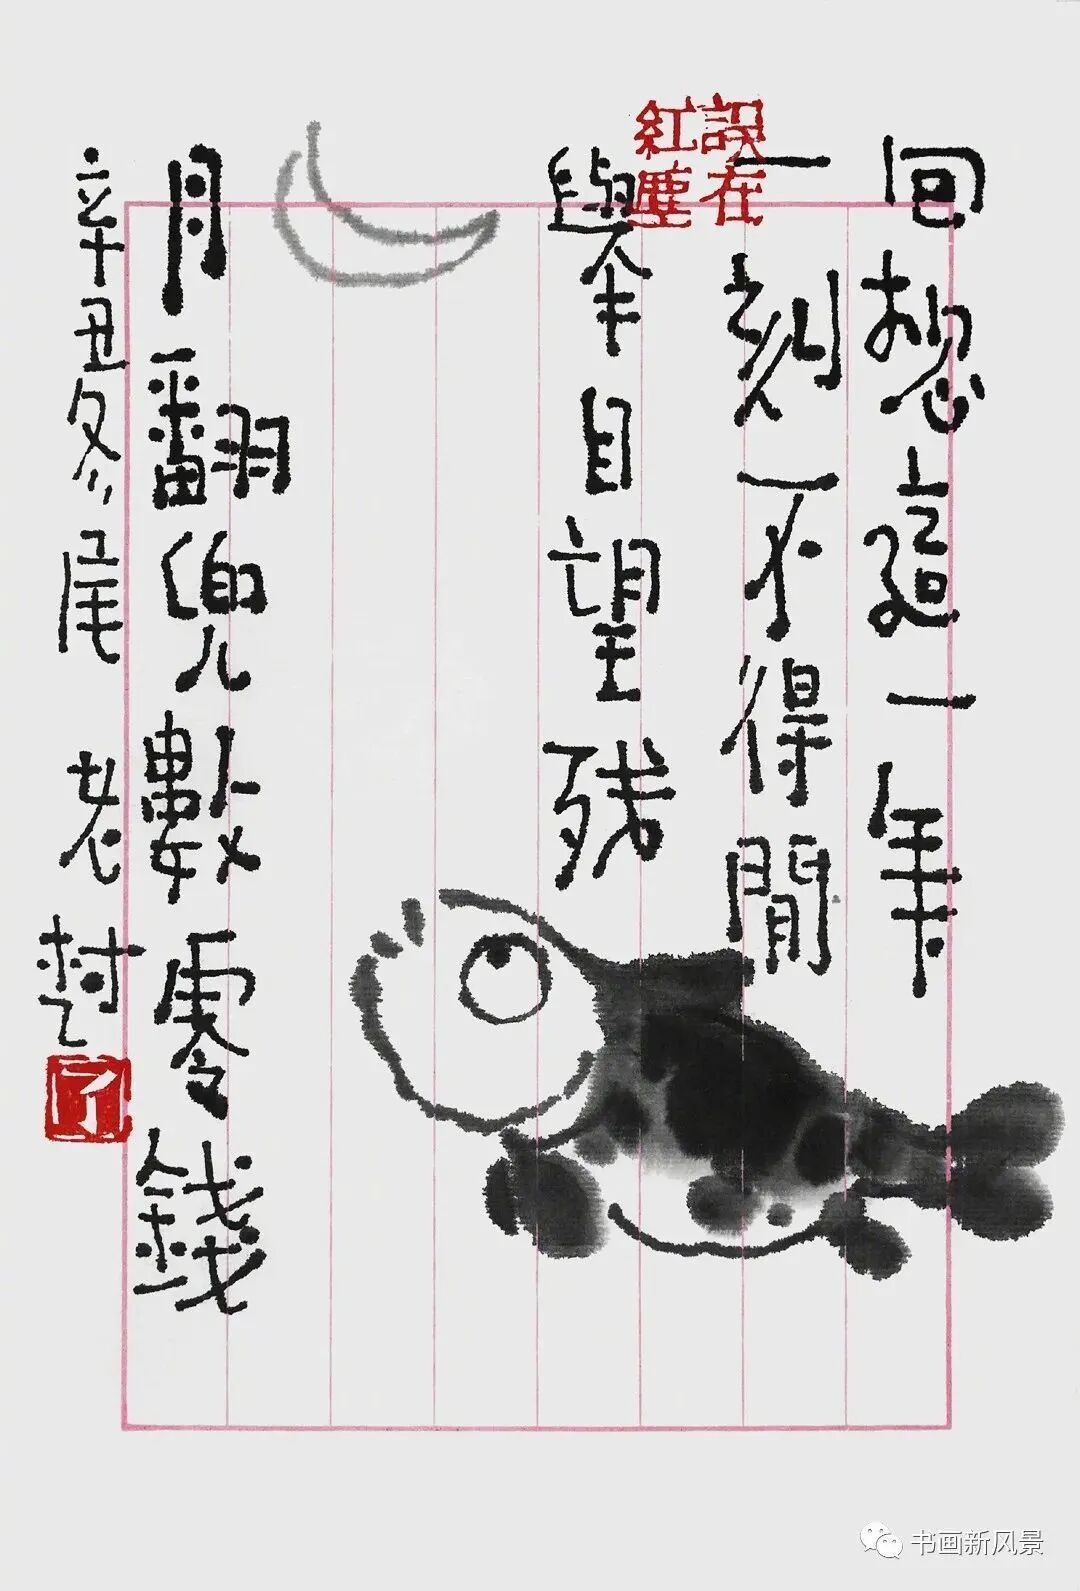 回想這一年
一刻不得閒
舉目望残
月翻兜數零錢
辛丑冬尾 老村
誤在
紅塵
书画新风景